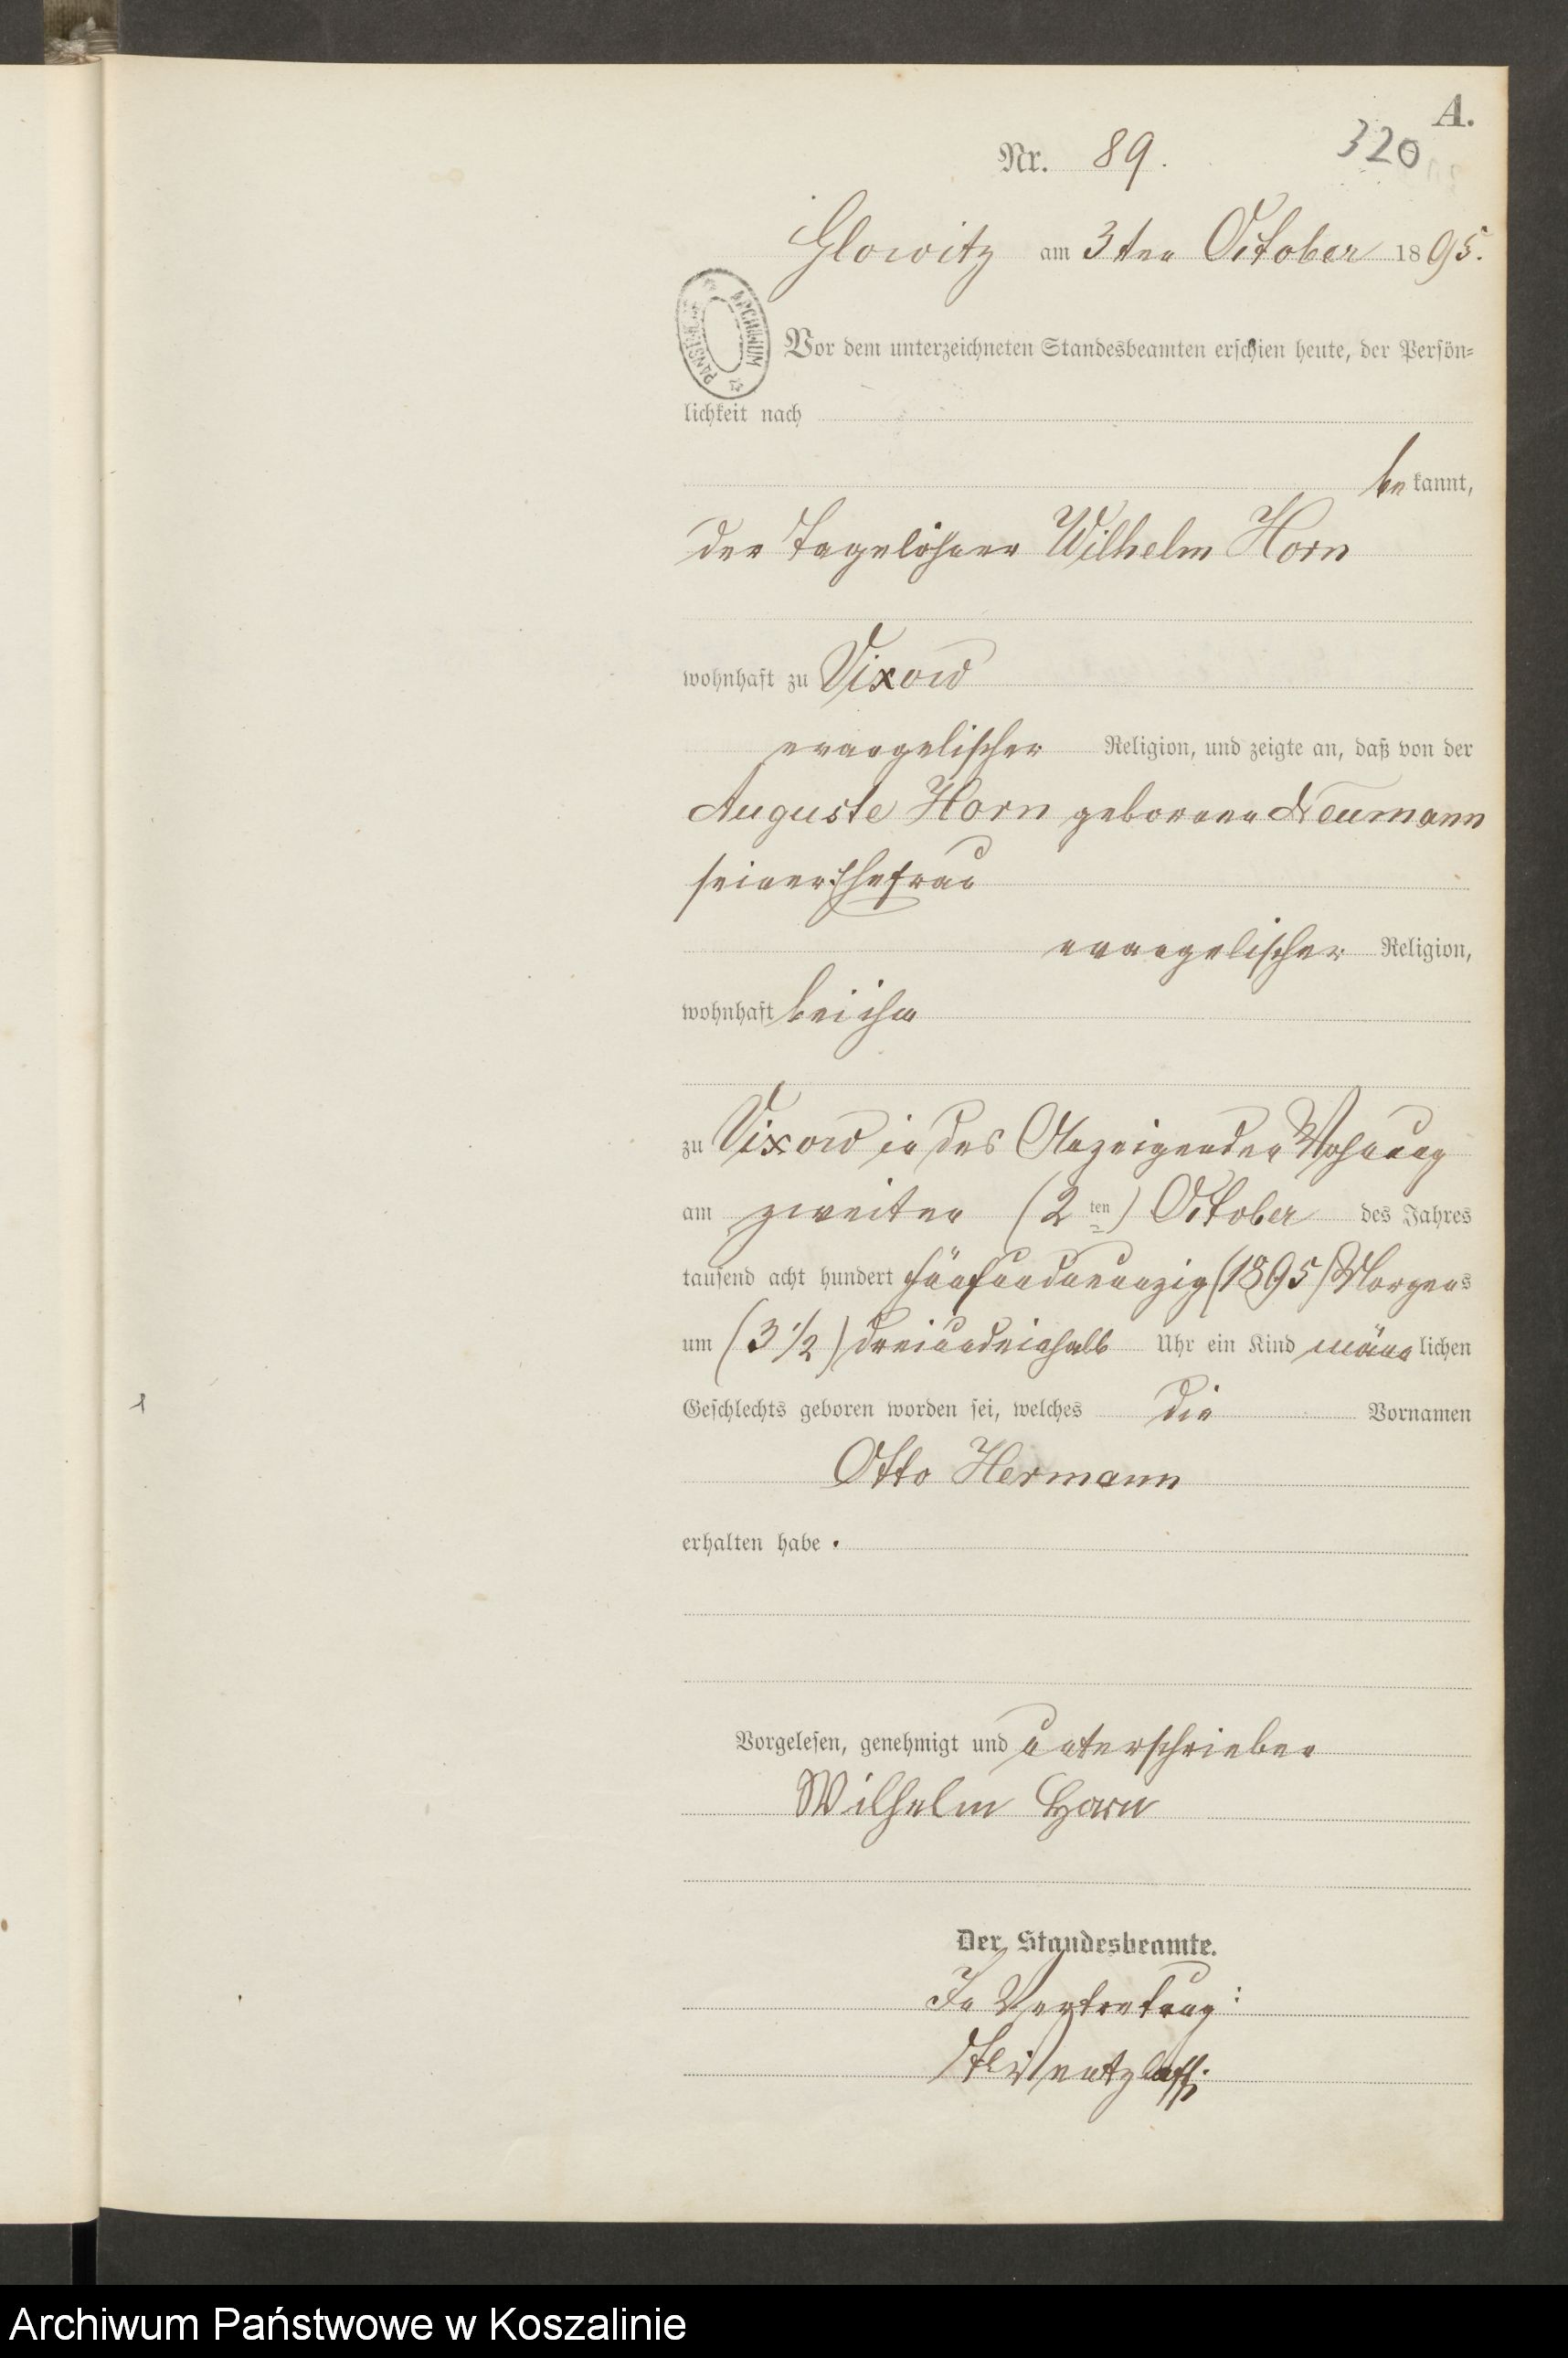 A.
Nr. 89.
320
Glowitz am 3ten October 1895.
ARCHIWUM
Vor dem unterzeichneten Standesbeamten erschien heute, der Persön-
lichkeit nach
bekannt,
der Tagelöhner Wilhelm Horn
wohnhaft zu Vixow
evangelischer Religion, und zeigte an, daß von der
Auguste Horn geborenen Neumann
seiner Ehefrau
evangelischer Religion,
wohnhaft bei ihm
zu Vixow in des Anzeigenden Wohnung
am zweiten (2ten) October des Jahres
tausend acht hundert fünfundneunzig (1895) Morgens
um (3 1/2) dreiundeinhalb Uhr ein Kind männlichen
Geschlechts geboren worden sei, welches die Vornamen
Otto Hermann
erhalten habe.
Vorgelesen, genehmigt und unterschrieben
Wilhelm Horn
Der Standesbeamte.
In Vertretung:
Archiwum Państwowe w Koszalinie